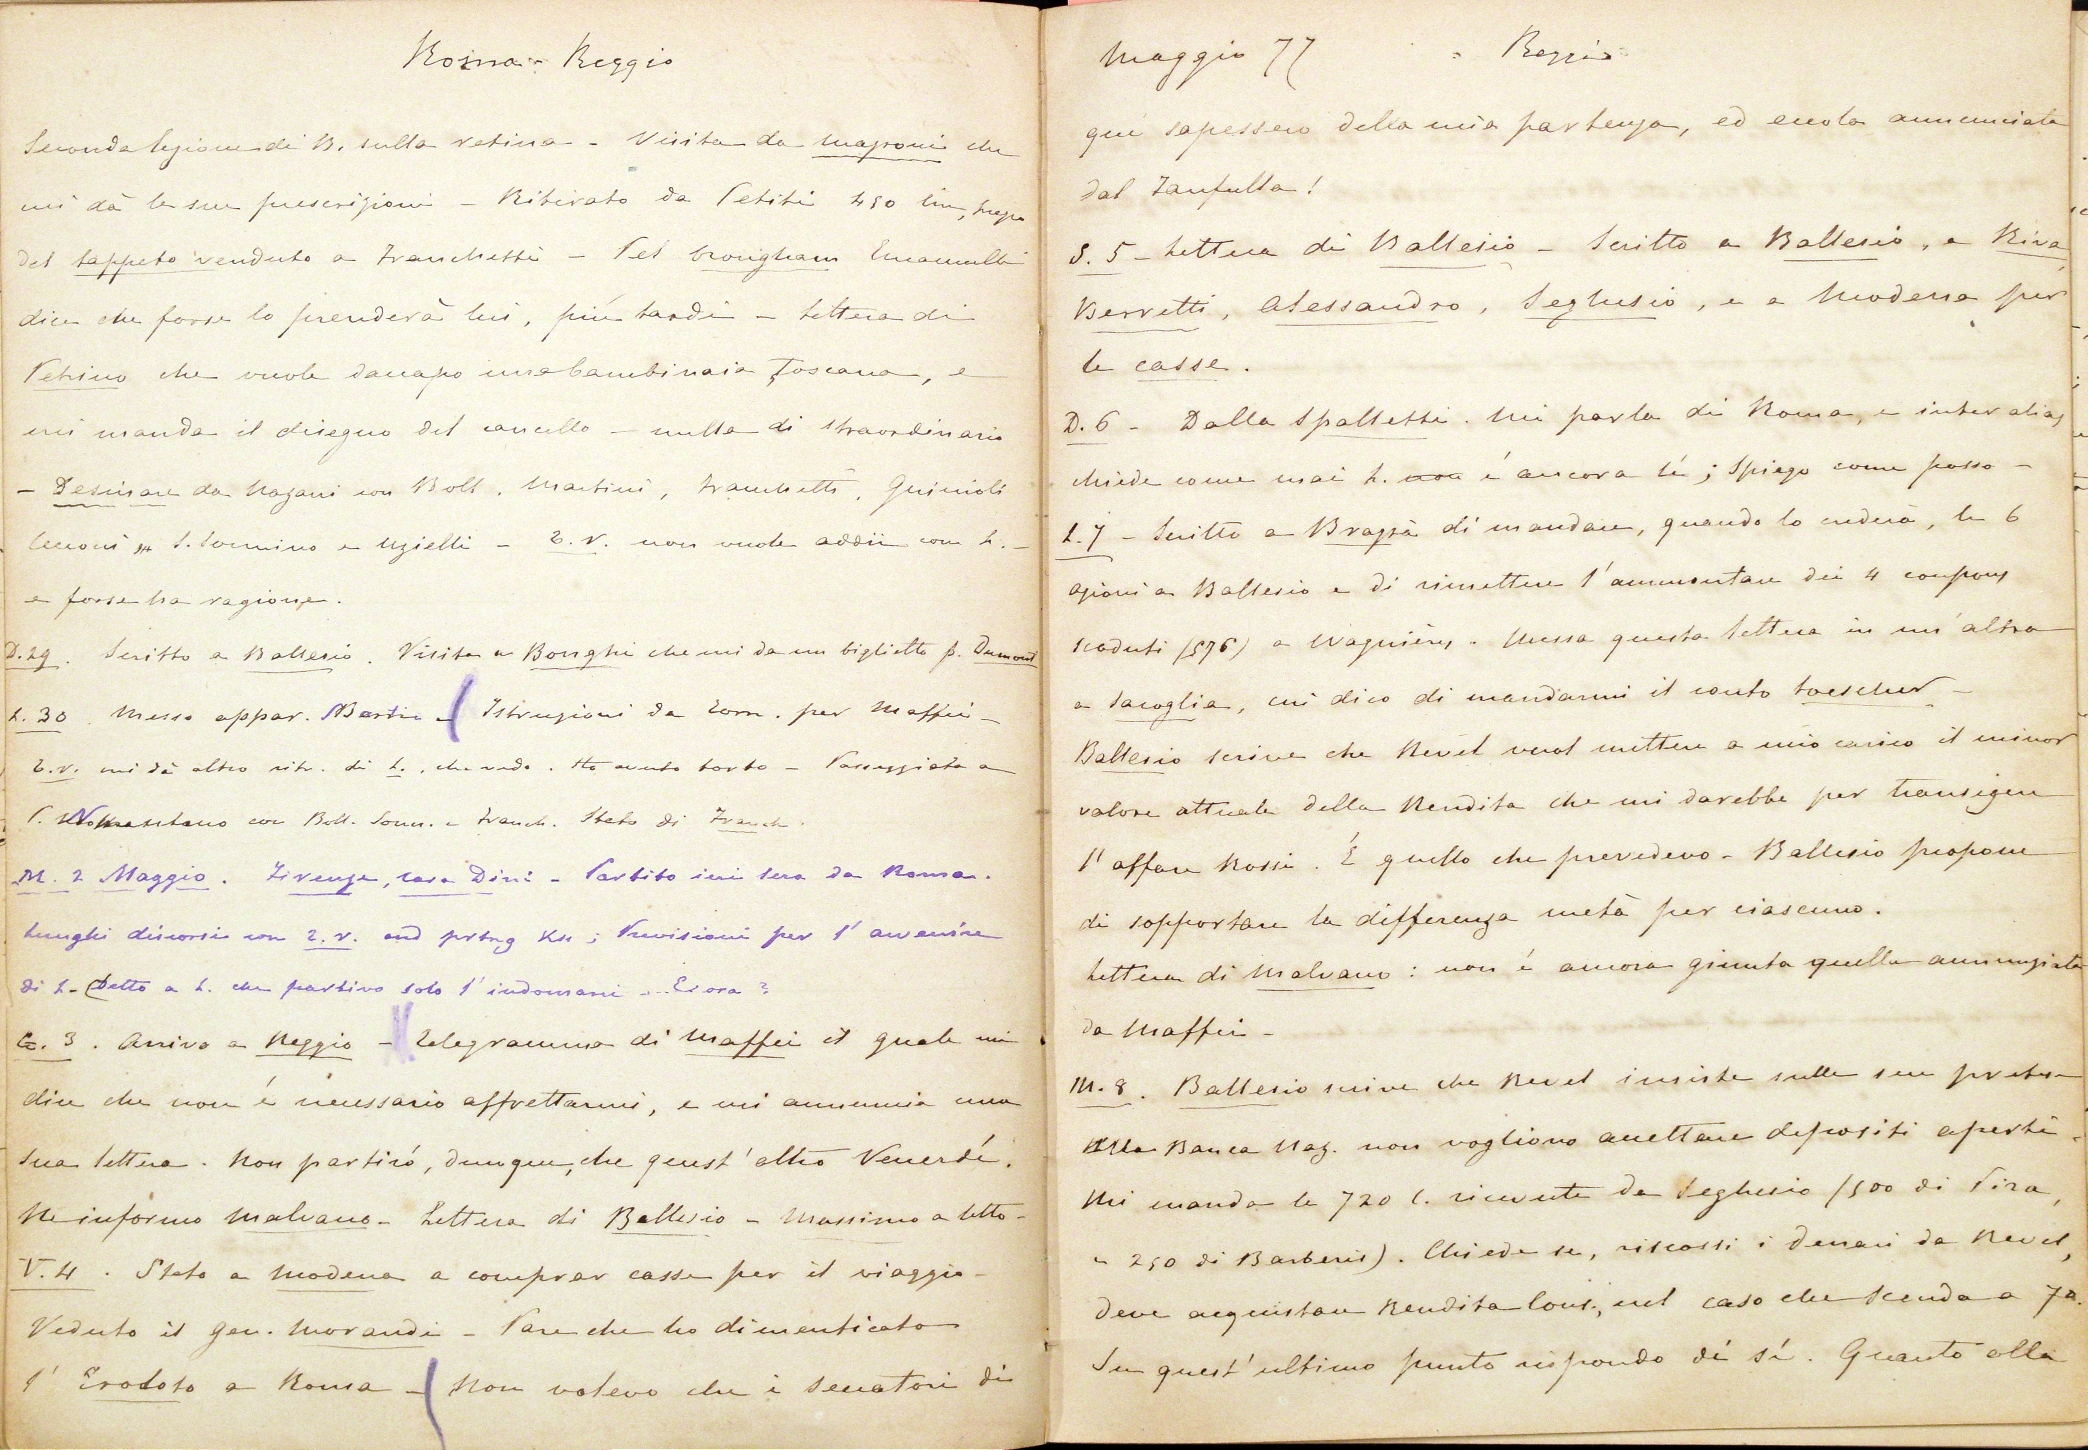 Roma - Reggio
Seconda lezione di B. sulla retina - Visita da Mazzoni che
mi dà le sue prescrizioni - Ritirato da Petiti 450 lire, prezzo
del tappeto venduto a Franchetti - Pel brougham Emanuelli
dice che forse lo prenderà lui, più tardi - Lettera di
Petrino che vuole daccapo una bambinaia Toscana, e
mi manda il disegno del cancello - nulla di straordinario
- Desinare da Nazari con Boll. Martini, Franchetti, Guicioli
S. Sonnino e Uzielli - E.V. non vuole addii con L. -
e forse ha ragione.
D. 29. Scritto a Ballesio. Visita a Bonghi che mi da un biglietto p. Dumont
L. 30. Messo appar. Istruzioni da Corr. per Maffei -
E.V. mi dà altro ritr. di L., che vedo. Ho avuto torto - Passeggiata a
P. Nomentano con Boll. Sonn. e Franch. Stato di Franch.
M. 2 Maggio. Firenze, casa Dini - Partito ieri sera da Roma.
Lunghi discorsi con E.V. ; Previsioni per l'avvenire
di L. - Detto a L. che partivo solo l'indomani ... E ora ?
G. 3. Arrivo a Reggio - Telegramma di Maffei il quale mi
dice che non é necessario affrettarmi, e mi annuncia una
sua lettera. Non partiró, dunque, che quest'altro Venerdí.
Ne informo Malvano - Lettera di Ballesio - Massimo a letto -
V. 4. Stato a Modena a comprar casse per il viaggio -
Veduto il gen. Morandi - Pare che ho dimenticato
l'Erodoto a Roma - Non volevo che i Senatori di
Maggio 77 - Reggio
qui sapessero della mia partenza, ed eccola annunciata
dal Fanfulla!
S. 5 - Lettera di Ballesio - Scritto a Ballesio, a Riva
Berretti, Alessandro, Seghesio, e a Modena per
le casse.
D. 6 - Dalla Spalletti. Mi parla di Roma, e inter alias
chiede come mai L. non é ancora lí ; Spiego come posso -
L. 7 - Scritto a Brazzà di mandare, quando lo crederà, le 6
azioni a Ballesio e di rimettere l'ammontare dei 4 coupons
scaduti (576) a Wagnière. Messa questa lettera in un'altra
a Saroglia, cui dico di mandarmi il conto Loescher -
Ballesio scrive che Revel vuol mettere a mio carico il minor
valore attuale della Rendita che mi darebbe per transigere
l'affare Rossi. É quello che prevedevo - Ballesio propone
di sopportare la differenza metà per ciascuno.
Lettera di Malvano : non é ancora giunta quella annunziata
da Maffei -
M. 8. Ballesio scrive che Revel insiste sulle sue pretese
Alla Banca Naz. non vogliono accettare depositi aperti -
Mi manda le 720 l. ricevute da Seghesio (500 di Pira,
e 250 di Barberis). Chiede se, riscossi i denari da Revel,
deve acquistare Rendita Cons., nel caso che scenda a 70.
Su quest'ultimo punto rispondo di sí. Quanto alla